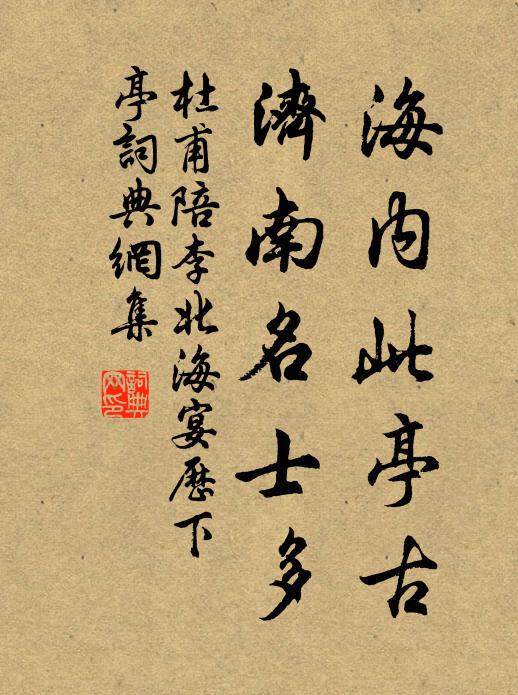 海内此亭古
濟南名士多
杜甫陪李北海宴歷下
亭詞典網集
詞典
网印